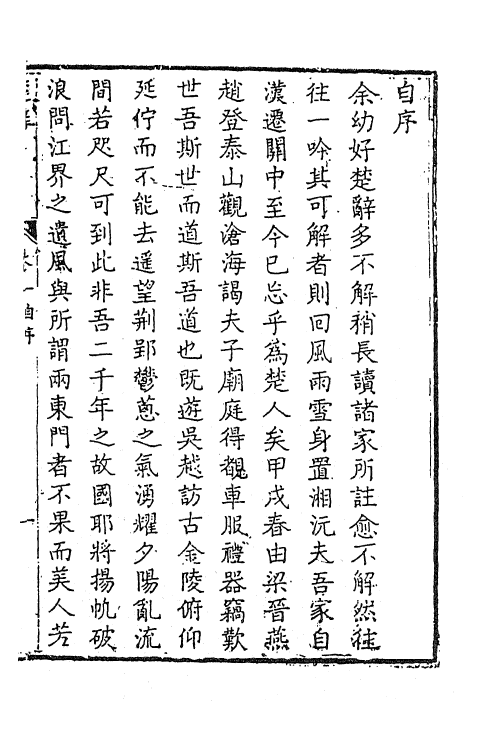 自序
余幼好楚辭多不解稍長讀諸家所註愈不解然往
往一吟其可解者則回風雨雪身置湘沅夫吾家自
漢遷關中至今已忘乎爲楚人矣甲戌春由梁晉燕
趙登泰山觀滄海謁夫子廟庭得覩車服禮器竊歎
世吾斯世而道斯吾道也既遊吳越訪古金陵俯仰
延佇而不能去遥望荆郢鬱蔥之氣湧耀夕陽亂流
間若咫尺可到此非吾二千年之故國耶將揚帆破
浪問江界之遺風與所謂兩東門者不果而美人若
自序
一